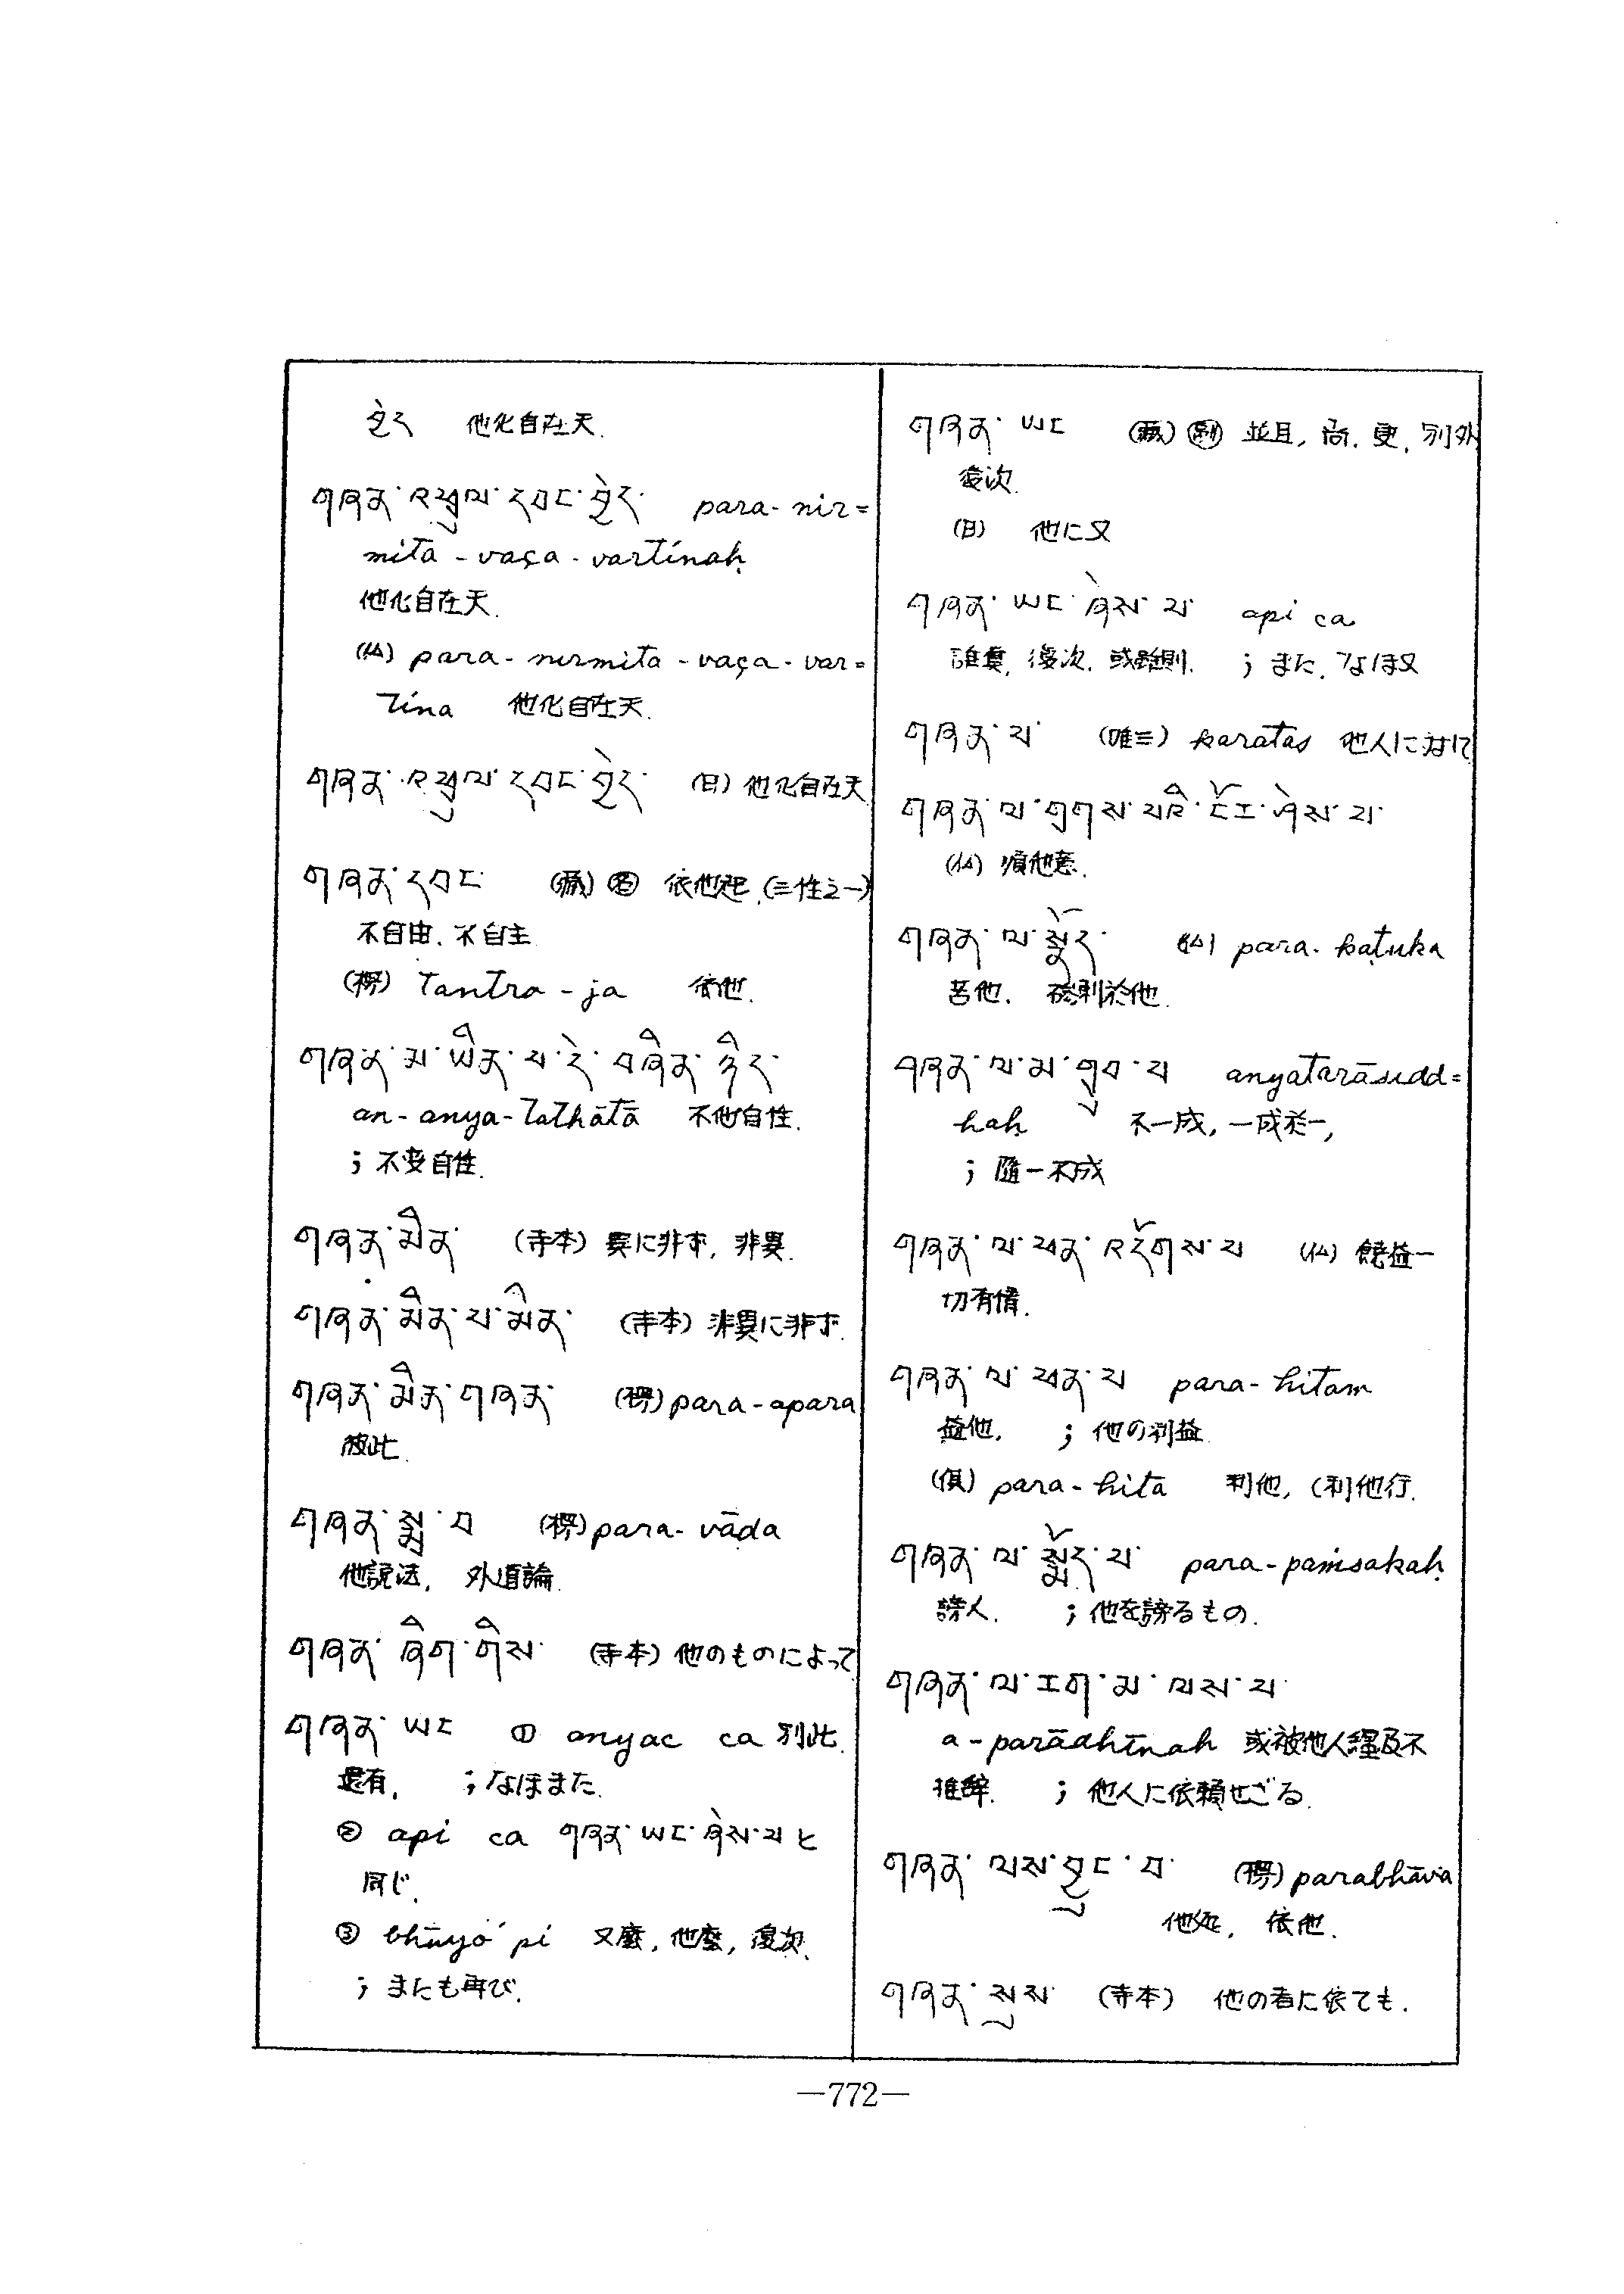 བྱེད 他化自在天.
གཞན་འཕྲུལ་དབང་བྱེད་ para-nir=
mita-vaça-vartinaḥ
他化自在天.
(仏) para-nirmita-vaça-var=
tina 他化自在天.
གཞན་འཕྲུལ་དབང་བྱེད་ (日) 他化自在天
གཞན་དབང་ (蔵) ㊔ 依他起.(三性之一)
不自由. 不自主
(楞) Tantra-ja 依他.
གཞན་མ་ཡིན་པ་དེ་བཞིན་ཉིད་
an-anya-tathātā 不他自性.
; 不変自性.
གཞན་མིན་ (寺本) 異に非ず, 非異.
གཞན་མིན་པ་མིན་ (寺本) 非異に非ず.
གཞན་མིན་གཞན་ (楞) para-apara
彼此.
གཞན་སྨྲ་བ (楞) para-vāda
他說法, 外道論.
གཞན་ཞིག་གིས་ (寺本) 他のものによって
གཞན་ཡང ① anyac ca 別此.
還有, ; なほまた.
② api ca གཞན་ཡང་ཞེས་པ と
同じ.
③ bhūyo'pi 又麼, 他麼, 復次.
; またも再び.
གཞན་ཡང (蔵) ㊓ 並且, 尚, 更, 別外
復次.
(日) 他に又
གཞན་ཡང་ཞེས་པ་ api ca
復次. 或 ; また, なほ又
གཞན་པ་ (唯三) karatas 他人に対して
གཞན་ལ་གྲགས་པའི་ངོར་ཤེས་པ་
(仏) 順他意.
གཞན་ལ་སྡོད་ (仏) para-kaṭuka
苦他. 於他.
གཞན་ལ་མ་གྲུབ་པ anyatarāsidd=
haḥ 不一成, 一成於一,
; 隨一不成
གཞན་ལ་ཕན་འདོགས་པ (仏) 饒益一
切有情.
གཞན་ལ་ཕན་པ para-hitam
益他. ; 他の利益.
(倶) para-hita 利他, (利他行.
གཞན་ལ་སྨོད་པ་ para-paṁsakaḥ
謗人. ; 他を謗るもの.
གཞན་ལ་རག་མ་ལས་པ་
a-parādhīnaḥ 或被他人及不
推辞. ; 他人に依頼せざる.
གཞན་ལས་བྱུང་བ་ (楞) parabhāva
他処, 依他.
གཞན་སུས་ (寺本) 他の者に依ても.
—772—